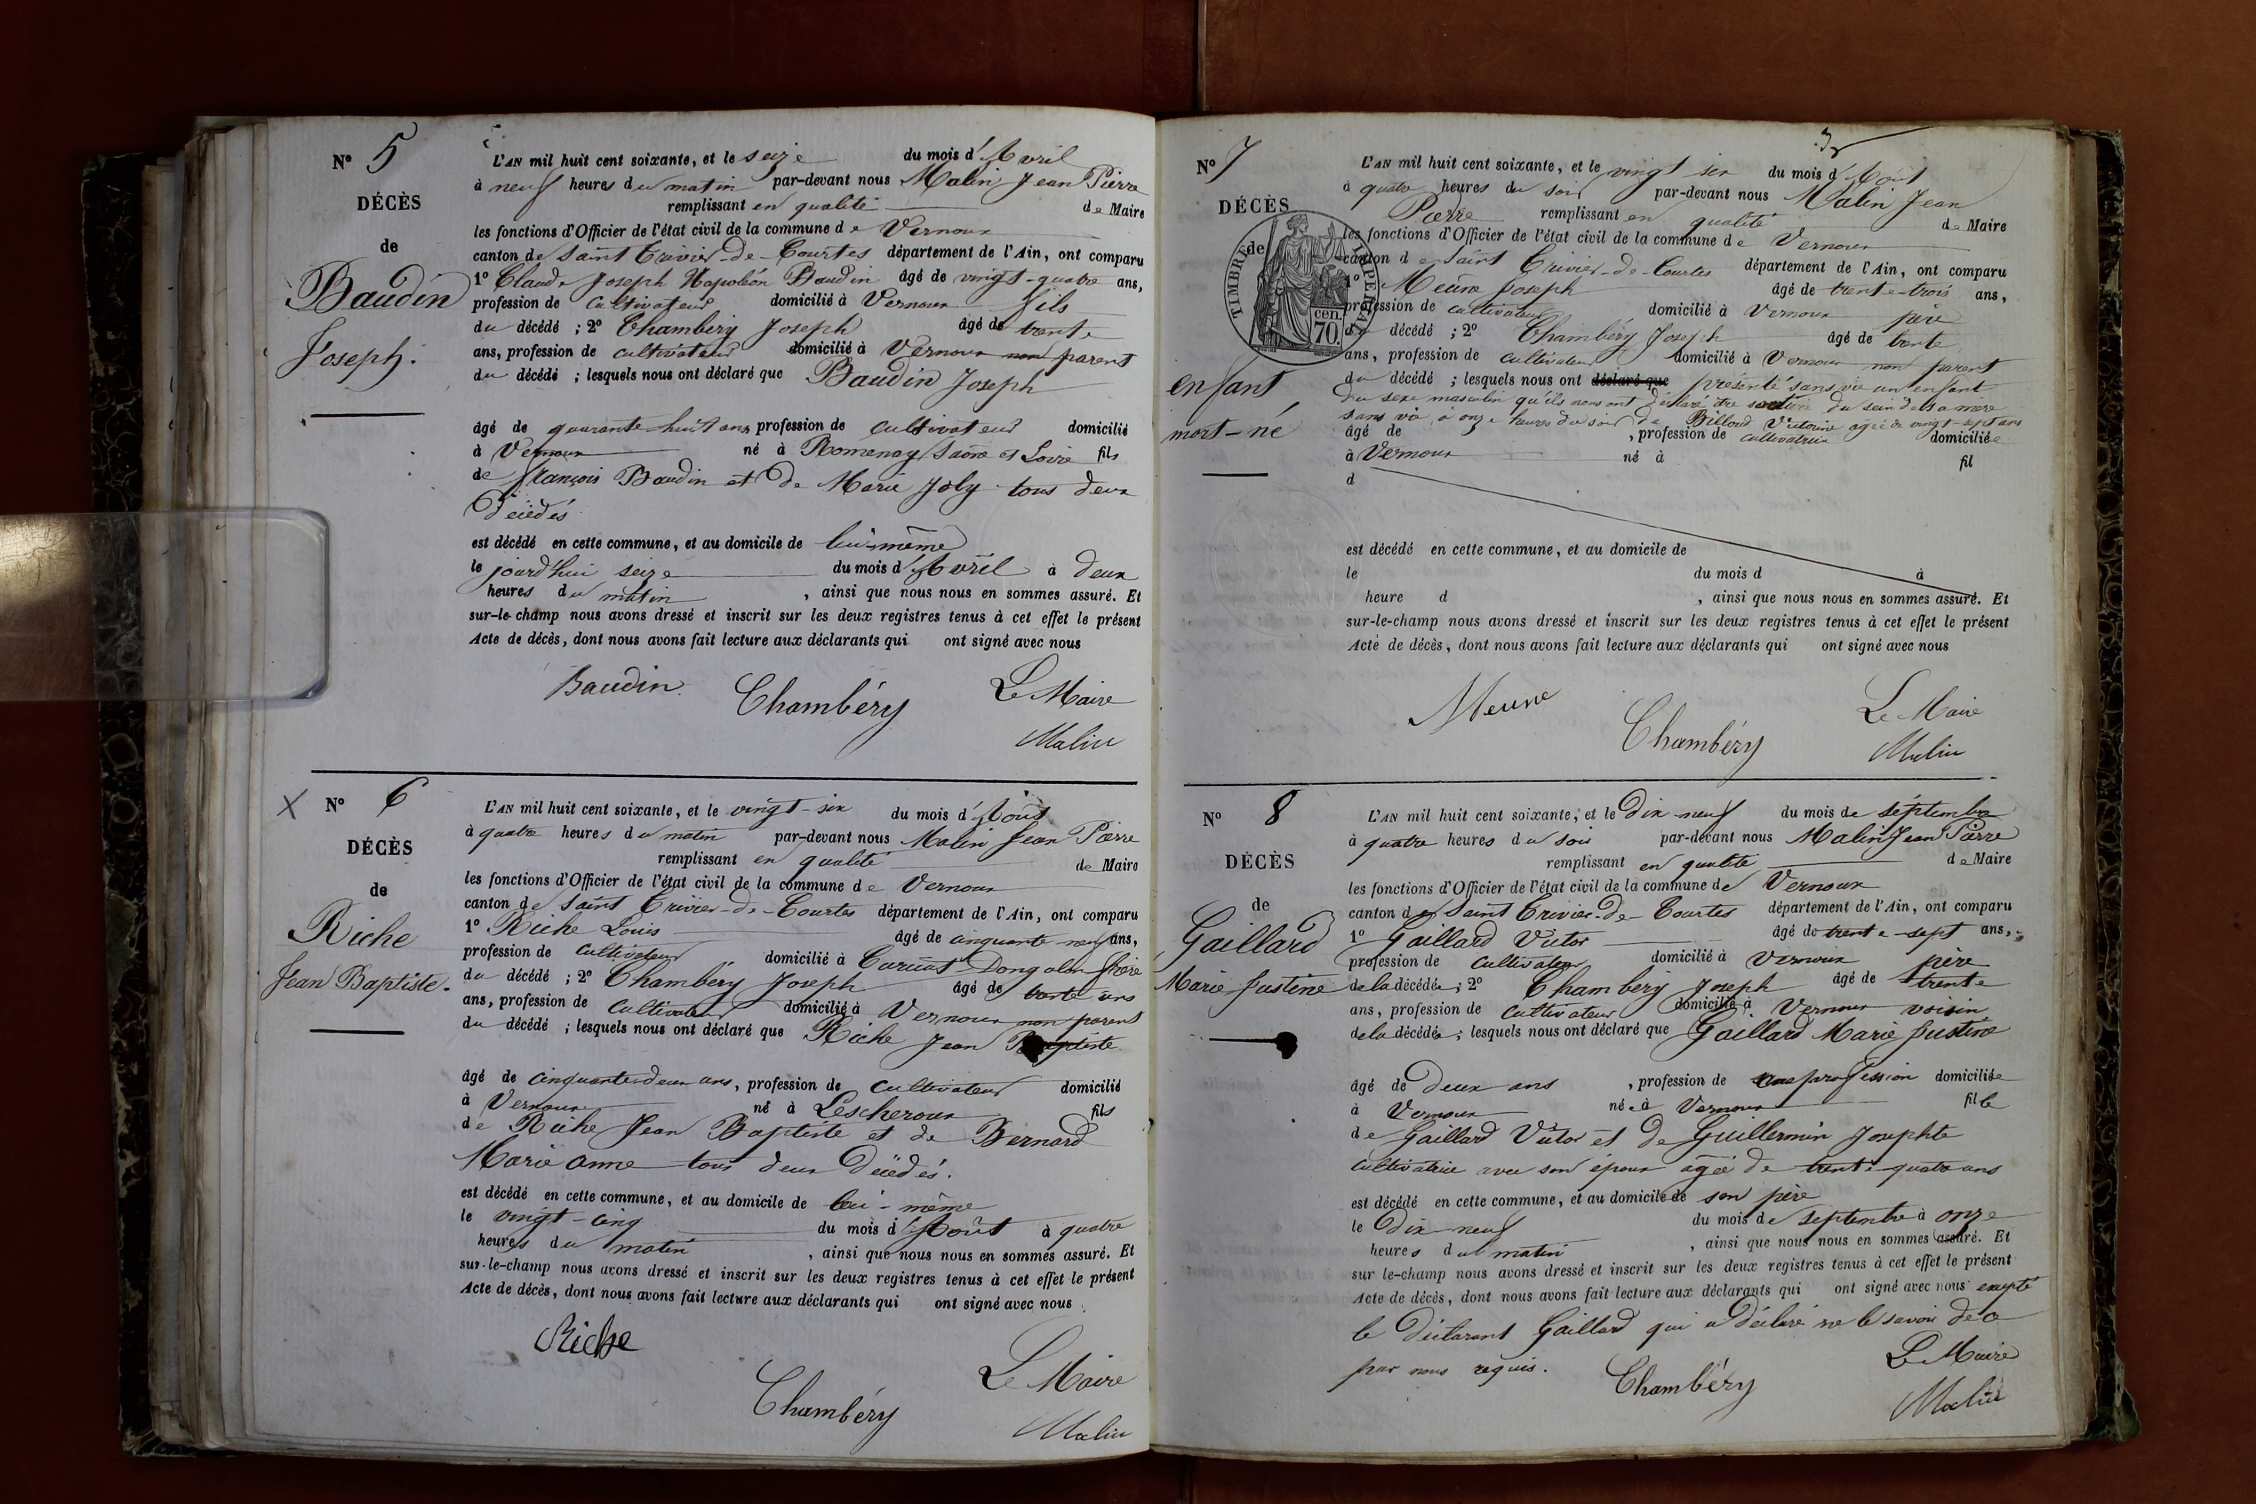 N° 5
DÉCÈS
de
Baudin
Joseph.
L'AN mil huit cent soixante, et le seize du mois d'Avril
à neuf heures du matin par-devant nous Malin Jean Pierre
remplissant en qualité de Maire
les fonctions d'Officier de l'état civil de la commune de Vernoux
canton de Saint Trivier-de-Courtes département de l'Ain, ont comparu
1° Claude Joseph Napoléon Baudin âgé de vingt-quatre ans,
profession de cultivateur domicilié à Vernoux fils
du décédé ; 2° Chambéry Joseph âgé de trente
ans, profession de cultivateur domicilié à Vernoux non parent
du décédé ; lesquels nous ont déclaré que Baudin Joseph
âgé de quarante-huit ans profession de cultivateur domicilié
à Vernoux né à Romenay Saône et Loire fils
de François Baudin et de Marie Joly tous deux
décédés
est décédé en cette commune, et au domicile de lui-même
le jourd'hui seize du mois d'Avril à deux
heures du matin, ainsi que nous nous en sommes assuré. Et
sur-le-champ nous avons dressé et inscrit sur les deux registres tenus à cet effet le présent
Acte de décès, dont nous avons fait lecture aux déclarants qui ont signé avec nous
Baudin Chambéry Le Maire
Malin
N° 6
DÉCÈS
de
Riche
Jean Baptiste.
L'AN mil huit cent soixante, et le vingt-six du mois d'Août
à quatre heures du matin par-devant nous Malin Jean Pierre
remplissant en qualité de Maire
les fonctions d'Officier de l'état civil de la commune de Vernoux
canton de Saint Trivier-de-Courtes département de l'Ain, ont comparu
1° Riche Louis âgé de cinquante neuf ans,
profession de cultivateur domicilié à Curciat-Dongalon frère
du décédé ; 2° Chambéry Joseph âgé de trente ans
ans, profession de cultivateur domicilié à Vernoux non parent
du décédé ; lesquels nous ont déclaré que Riche Jean Baptiste
âgé de cinquante-deux ans, profession de cultivateur domicilié
à Vernoux né à Lescheroux fils
de Riche Jean Baptiste et de Bernard
Marie Anne tous deux décédés.
est décédé en cette commune, et au domicile de lui-même
le vingt-cinq du mois d'Août à quatre
heures du matin, ainsi que nous nous en sommes assuré. Et
sur-le-champ nous avons dressé et inscrit sur les deux registres tenus à cet effet le présent
Acte de décès, dont nous avons fait lecture aux déclarants qui ont signé avec nous
Riche
Chambéry Le Maire
Malin
N° 7
DÉCÈS
de
enfant
mort-né
TIMBRE IMPERIAL
70. cen.
L'AN mil huit cent soixante, et le vingt six du mois d'Août
à quatre heures du soir par-devant nous Malin Jean
Pierre remplissant en qualité de Maire
les fonctions d'Officier de l'état civil de la commune de Vernoux
canton de Saint Trivier-de-Courtes département de l'Ain, ont comparu
1° Meune Joseph âgé de trente-trois ans,
profession de cultivateur domicilié à Vernoux père
du décédé ; 2° Chambéry Joseph âgé de trente
ans, profession de cultivateur domicilié à Vernoux non parent
du décédé ; lesquels nous ont déclaré que présenté sans vie un enfant
du sexe masculin qu'ils nous ont déclaré être sorti du sein de sa mère
sans vie à onze heures du soir de Billoud Victorine agée de vingt-sept ans
âgé de , profession de cultivatrice domiciliée
à Vernoux né à fil
d
est décédé en cette commune, et au domicile de
le du mois d à
heure d , ainsi que nous nous en sommes assuré. Et
sur-le-champ nous avons dressé et inscrit sur les deux registres tenus à cet effet le présent
Acte de décès, dont nous avons fait lecture aux déclarants qui ont signé avec nous
Meune
Chambéry Le Maire
Malin
N° 8
DÉCÈS
de
Gaillard
Marie Justine
L'AN mil huit cent soixante, et le dix neuf du mois de septembre
à quatre heures du soir par-devant nous Malin Jean Pierre
remplissant en qualité de Maire
les fonctions d'Officier de l'état civil de la commune de Vernoux
canton de Saint Trivier-de-Courtes département de l'Ain, ont comparu
1° Gaillard Victor âgé de trente-sept ans,
profession de cultivateur domicilié à Vernoux père
de la décédée ; 2° Chambéry Joseph âgé de trente
ans, profession de cultivateur domicilié à Vernoux voisin
de la décédée ; lesquels nous ont déclaré que Gaillard Marie Justine
âgé de deux ans, profession de profession domiciliée
à Vernoux née à Vernoux fille
de Gaillard Victor et de Guillermin Josephte
cultivatrice avec son époux agée de trente-quatre ans
est décédé en cette commune, et au domicile de son père
le dix neuf du mois de septembre à onze
heures du matin, ainsi que nous nous en sommes assuré. Et
sur le-champ nous avons dressé et inscrit sur les deux registres tenus à cet effet le présent
Acte de décès, dont nous avons fait lecture aux déclarants qui ont signé avec nous excepté
le déclarant Gaillard qui a déclaré ne le savoir de ce
par nous requis. Chambéry Le Maire
Malin